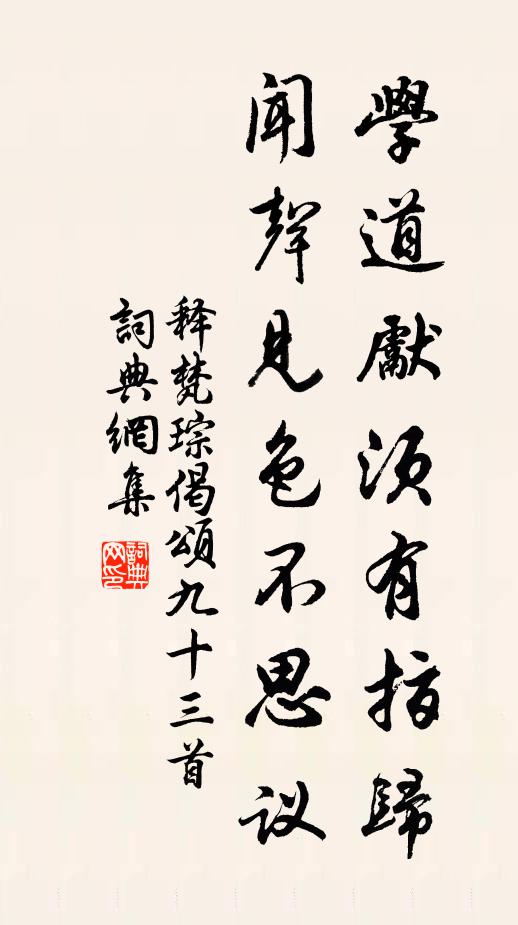 學道獻須有指歸
聞聲見色不思议
释梵琮偈頌九十三首
詞典網集
詞典网印